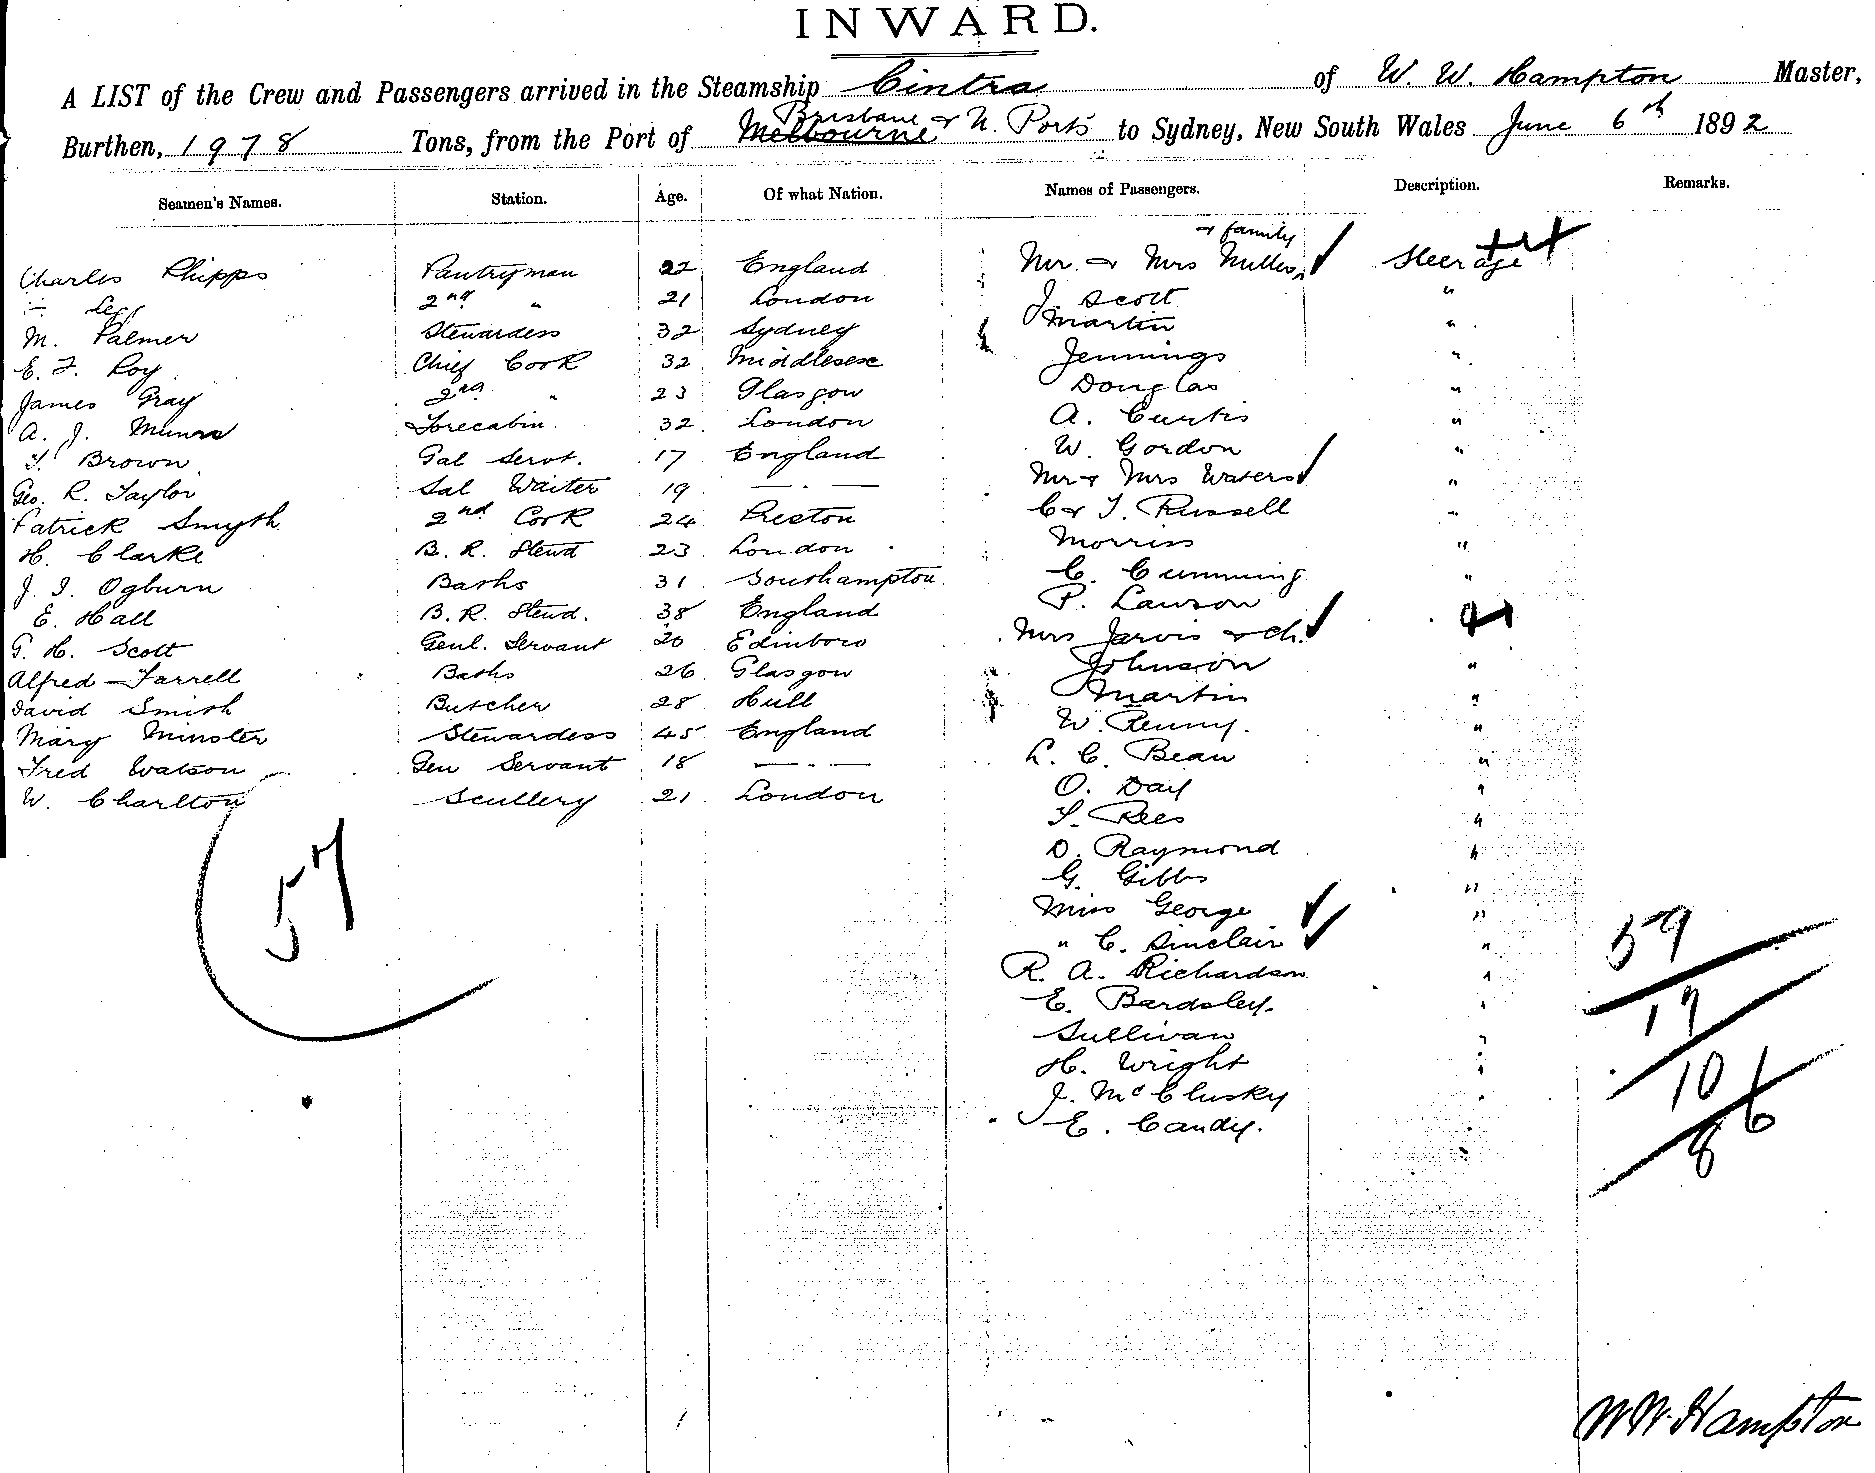 INWARD.
A LIST of the Crew and Passengers arrived in the Steamship Cintra of W. W. Hampton Master,
Brisbane & N. Ports
Burthen, 1978 Tons, from the Port of Melbourne to Sydney, New South Wales June 6th 1892
Seamen's Names. Station. Age. Of what Nation. Names of Passengers. Description. Remarks.
& family
Charles Phipps Pantryman 22 England Mr. & Mrs Steerage
2nd " 21 London J. Scott "
M. Palmer Stewardess 32 Sydney Martin "
E. F. Roy Chief Cook 32 Middlesex Jennings "
James Gray 2nd " 23 Glasgow Douglas "
A. J. Munro Forecabin 32 London A. Curtis "
T. Brown Gal Servt. 17 England W. Gordon "
Geo. R. Taylor Sal Waiter 19 — · — Mr & Mrs Waters "
Patrick Smyth 2nd Cook 24 Preston C & T. Russell "
H. Clarke B. R. Stewd 23 London Morris "
J. I. Ogburn Baths 31 Southampton C. Cumming "
E. Hall B. R. Stewd. 38 England P. Lawson
G. H. Scott Genl. Servant 20 Edinboro Mrs Jarvis & ch.
Alfred Farrell Baths 26 Glasgow Johnson "
David Smith Butcher 28 Hull Martin "
Mary Minster Stewardess 45 England W. Renny. "
Fred Watson Gen Servant 18 — · — L. C. Bean "
W. Charlton Scullery 21 London O. Day "
T. Rees "
D. Raymond "
57
G. Gibbs "
Miss George "
" C. Sinclair "
59
R. A. Richardson "
E. Bardsley. "
17
Sullivan "
H. Wright "
10
J. McClusky "
E. Candy. "
6
8
W W Hampton